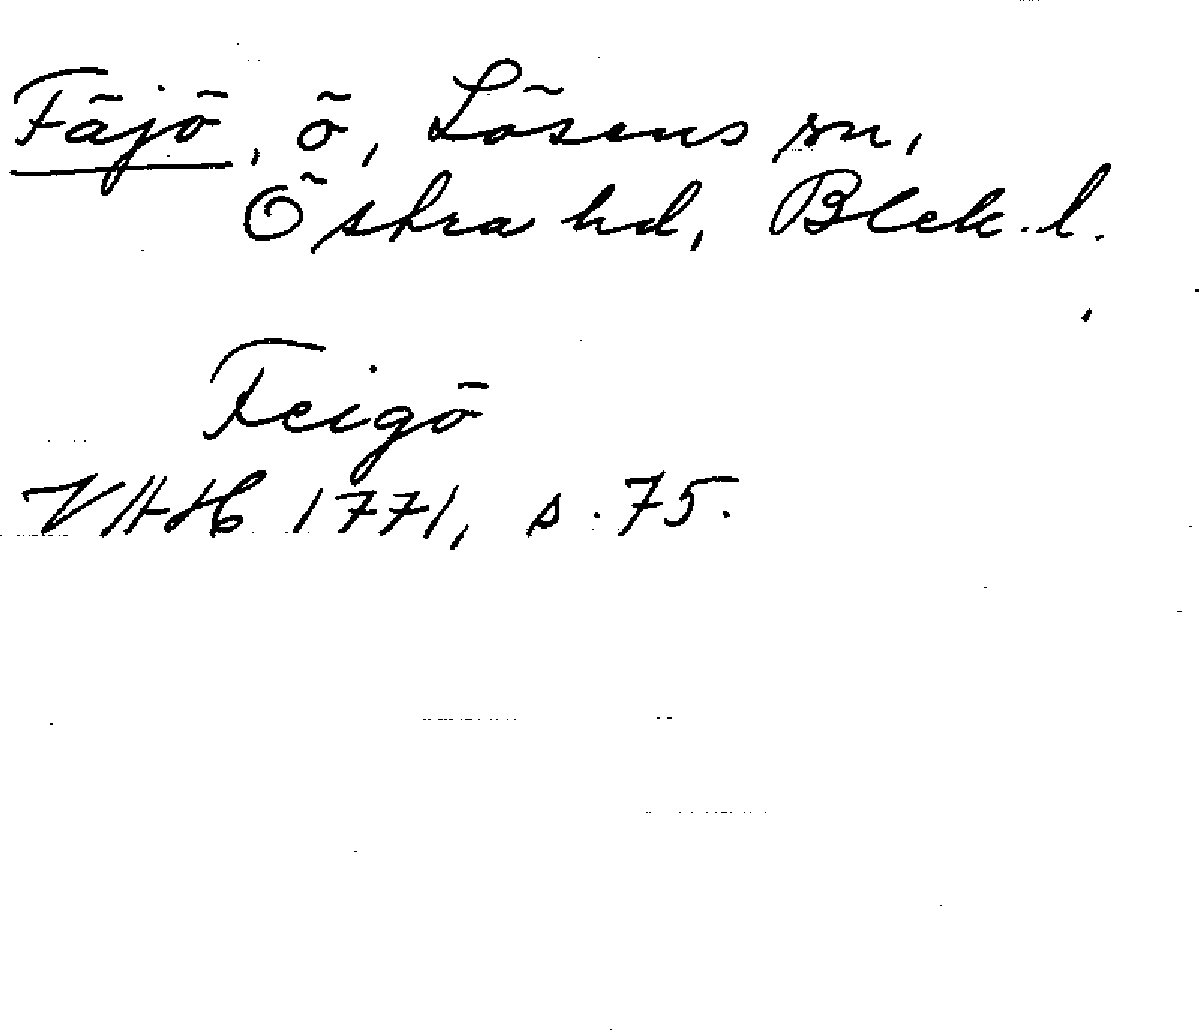 Fäjö, ö, Lösens sn,
Östra hd, Blek. l.
Feigö
VAH 1771, s. 75.